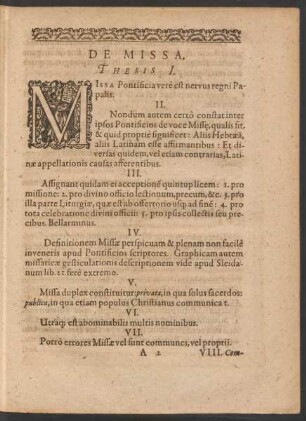 DE MISSA.
THESIS I.
MISSA Pontificia verè est nervus regni Pa-
palis.
II.
Nondum autem certò constat inter
ipsos Pontificios de voce Missę, qualis sit,
& quid propriè significet: Aliis Hebræâ,
aliis Latinam esse affirmantibus: Et di-
versas quidem, vel etiam contrarias, Lati-
næ appellationis causas afferentibus.
III.
Assignant quidam ei acceptionē quintuplicem: 1. pro
missione: 2. pro divino officio lectionum, precum, &c. 3. pro
illa parte Liturgiæ, quæ est ab offertorio usq; ad finē: 4. pro
tota celebratione divini officii: 5. pro ipsis collectis seu pre-
cibus. Bellarminus.
IV.
Definitionem Missæ perspicuam & plenam non facilè
inveneris apud Pontificios scriptores. Graphicam autem
missaticæ gesticulationis descriptionem vide apud Sleida-
num lib. 21. ferè extremo.
V.
Missa duplex constituitur: privata, in qua solus sacerdos:
publica, in qua etiam populus Christianus communicat.
VI.
Utraq; est abominabilis multis nominibus.
VII.
Porrò errores Missæ vel sunt communes, vel proprii.
A 2 VIII. Com-